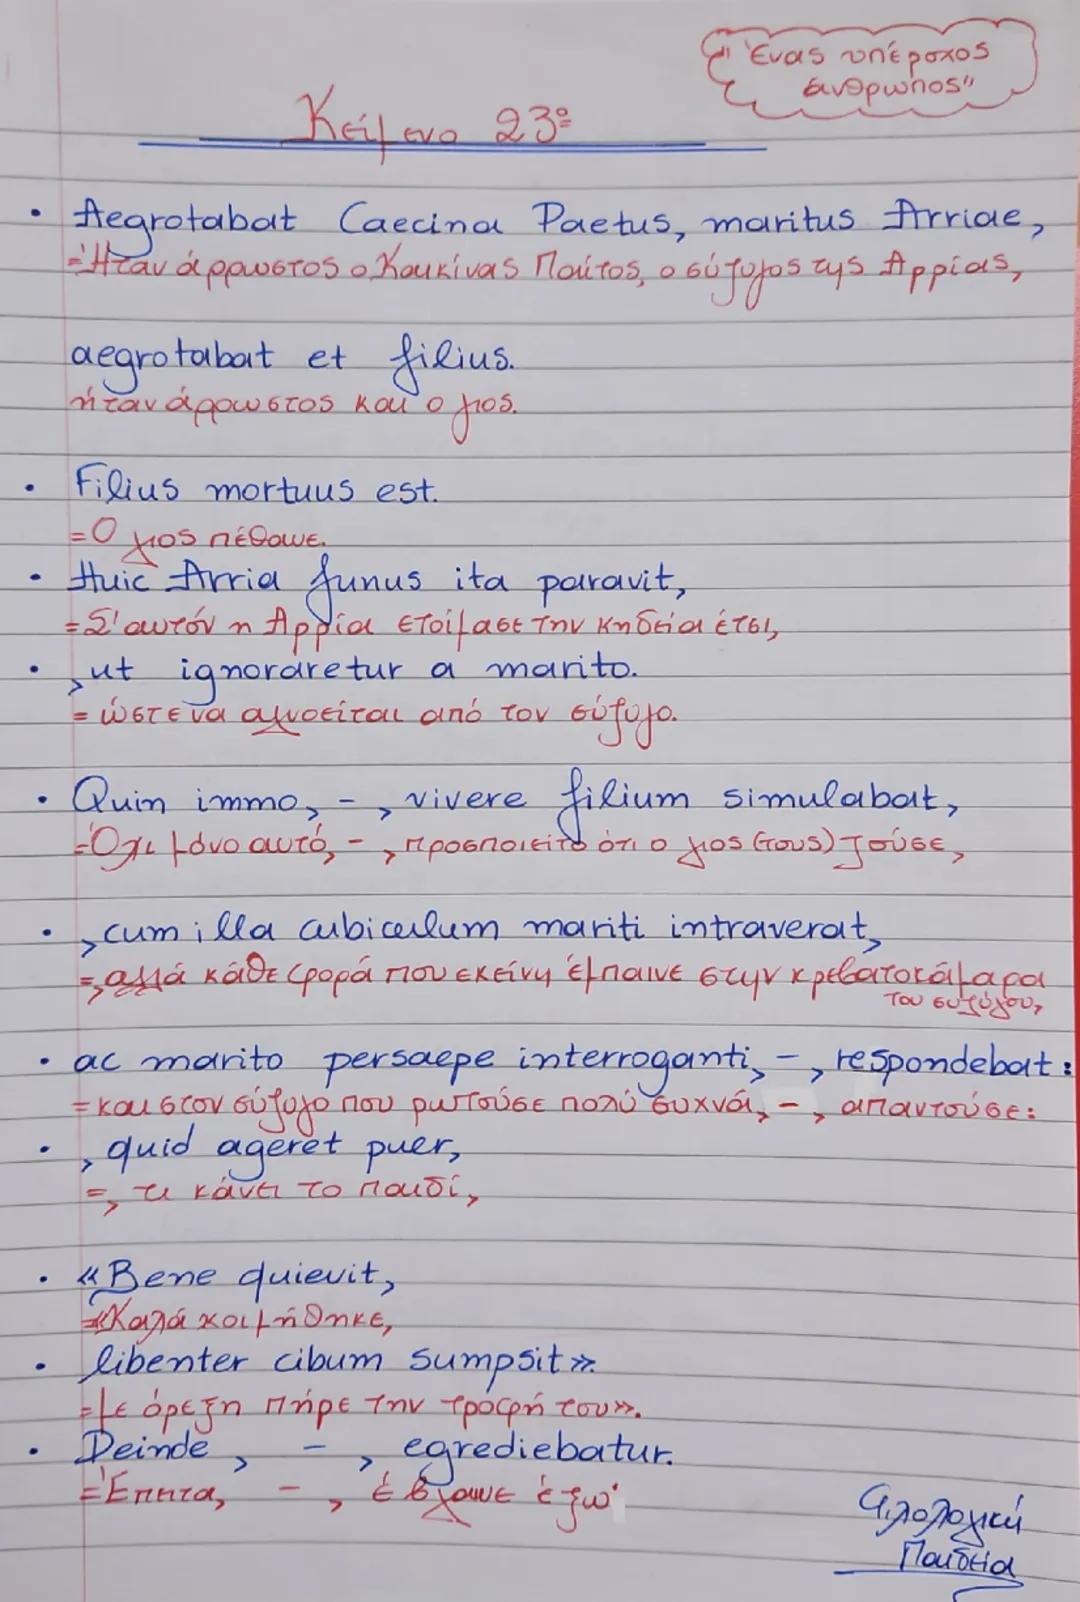 "Ένας υπέροχος
άνθρωπος"
Κείμενο 23º
• Aegrotabat Caecina Paetus, maritus Arriae,
=Ήταν άρρωστος ο Καικίνας Παίτος, ο σύζυγος της Αρρίας,
aegrotabat et filius.
ήταν άρρωστος και ο γιος.
• Filius mortuus est.
=Ο γιος πέθανε.
• Huic Arria funus ita paravit,
=Σ'αυτόν η Αρρία ετοίμασε την κηδεία έτσι,
• , ut ignoraretur a marito.
= ώστε να αγνοείται από τον σύζυγο.
• Quin immo, - , vivere filium simulabat,
=Όχι μόνο αυτό, - , προσποιείτο ότι ο γιος (τους) ζούσε,
• , cum illa cubiculum mariti intraverat,
=, αλλά κάθε φορά που εκείνη έμπαινε στην κρεβατοκάμαρα
του συζύγου,
• ac marito persaepe interroganti, - , respondebat:
= και στον σύζυγο που ρωτούσε πολύ συχνά, - , απαντούσε:
• , quid ageret puer,
=, τι κάνει το παιδί,
• «Bene quievit,
=«Καλά κοιμήθηκε,
• libenter cibum sumpsit».
=με όρεξη πήρε την τροφή του».
• Deinde , - , egrediebatur.
=Έπειτα, - , έβγαινε έξω·
Φιλολογική
Παιδεία